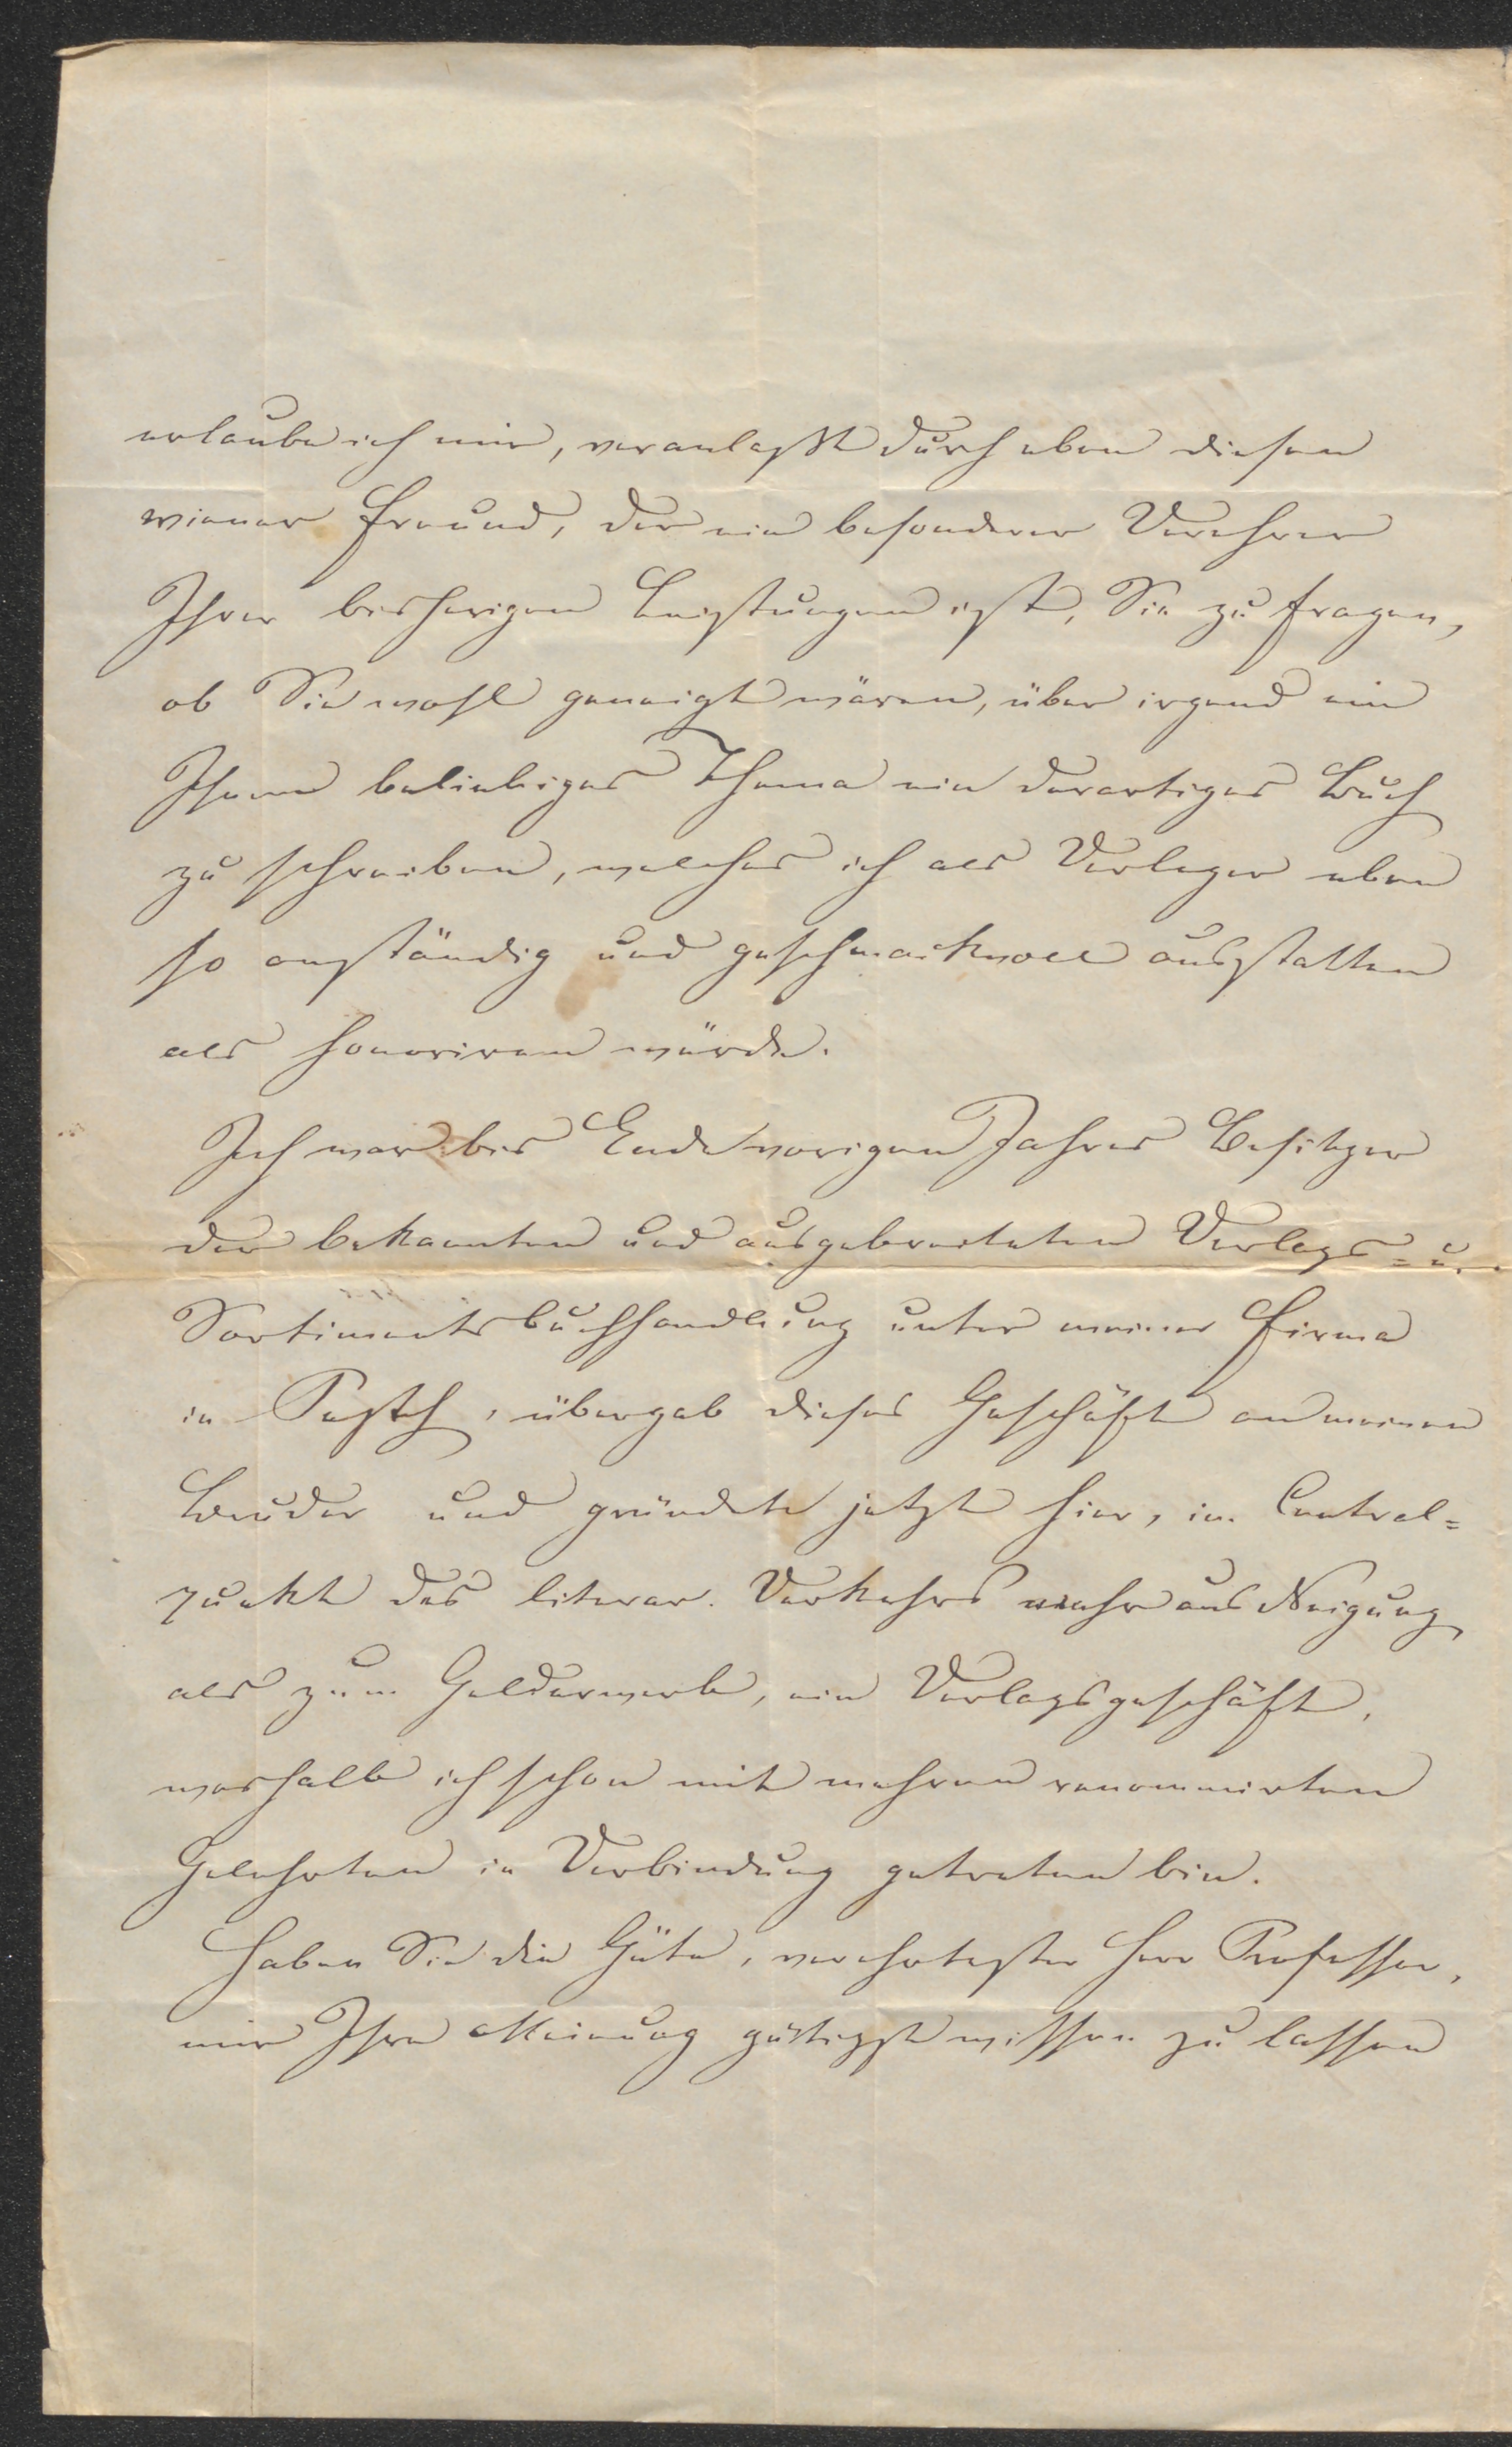 erlaube ich mir, veranlaßt durch eben diesen
wiener Freund, der ein besonderer Verehrer
Ihrer bisherigen Leistungen ist, Sie zu fragen,
ob Sie wohl geneigt wären, über irgend ein
Ihnen beliebiges Thema ein derartiges Buch
zu schreiben, welches ich als Verleger eben
so anständig und geschmackvoll ausstatten
als honoriren würde.
Ich war bis Ende vorigen Jahres Besitzer
der bekannten und ausgebreiteten Verlags= u.
Sortimentsbuchhandlung unter meiner Firma
in Pesth, übergab dieses Geschäft an meinen
Bruder und gründete jetzt hier, im Central=
punkt des literar. Verkehrs mehr aus Neigung
als zum Gelderwerb, ein Verlagsgeschäft,
weshalb ich schon mit mehren renommirten
Gelehrten in Verbindung getreten bin.
Haben Sie die Güte, verehrtester Herr Professor,
mir Ihre Meinung gütigst wissen zu lassen